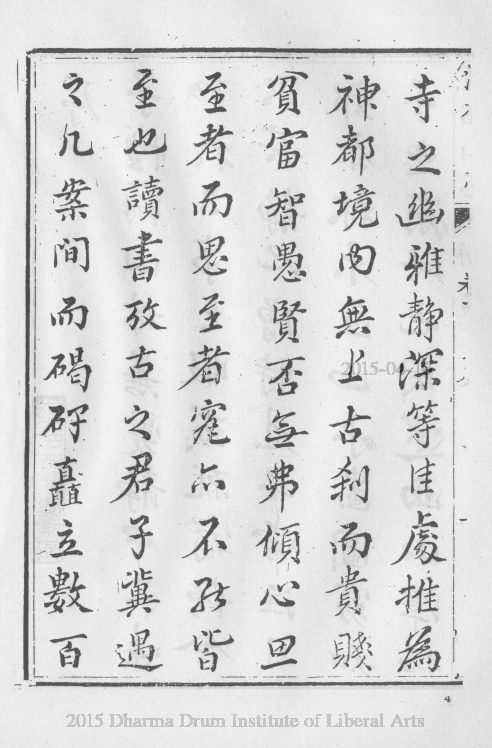 寺之幽雅静深等佳處推為
神都境内無上古刹而貴賤
貧富智愚賢否無弗傾心思
至者而思至者寔亦不能皆
至也讀書攷古之君子冀遇
之几案間而碣碑矗立數百
4
2015 Dharma Drum Institute of Liberal Arts